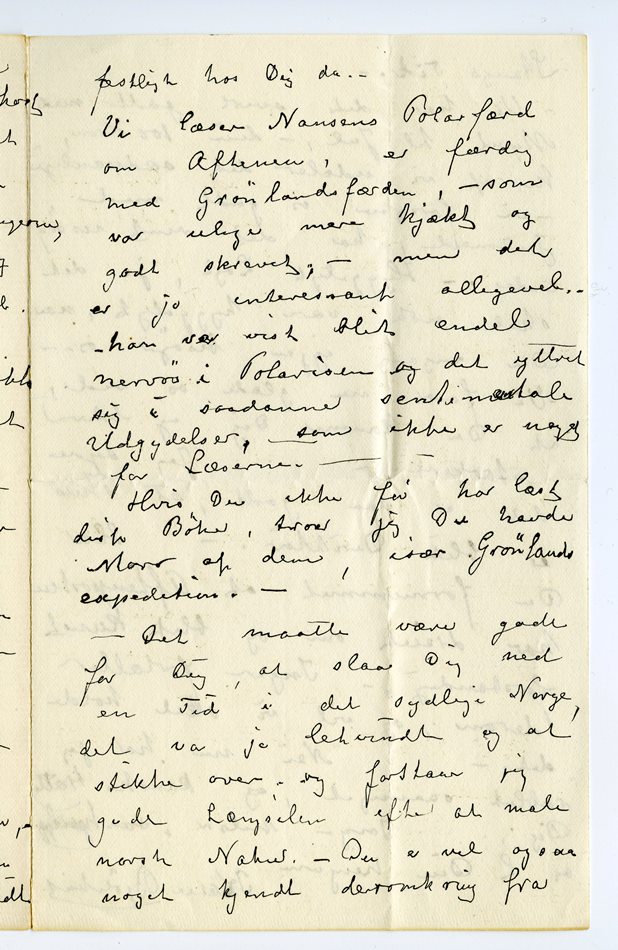 festligt hos Dig da. –
Vi læser Nansens Polarfærd
om Aftenen, er færdig
med Grønlandsfærden, – som
var ulige mere kjækt og
godt skrevet; – men det
er jo interessant allegevel. –
– han er vist blit endel
nervøs i Polarisen og det yttret
sig i saadanne sentimentale
Udgydelser, – som ikke er noget
for Læserne. –
Hvis Du ikke før har læst
disse Bøker, tror jeg Du havde
Moro af dem, især Grønlands
expedition. –
– Det maatte være godt
for Dig, at slaa Dig ned
en Tid i det sydlige Norge,
det var jo lekvindt og at
stikke over. og forstaar jeg
godt Længselen efter at male
norsk Natur. – Du er vel ogsaa
noget kjendt deromkring fra